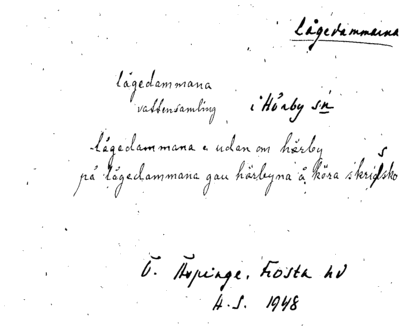 Lågedammarna
lågedammana
vattensamling i Hörby sn
lågedammana e udan om hörby
på lågedammana gau hörbyna å köra skridsko
Ö. Äspinge, Frosta hd
H.S. 1948